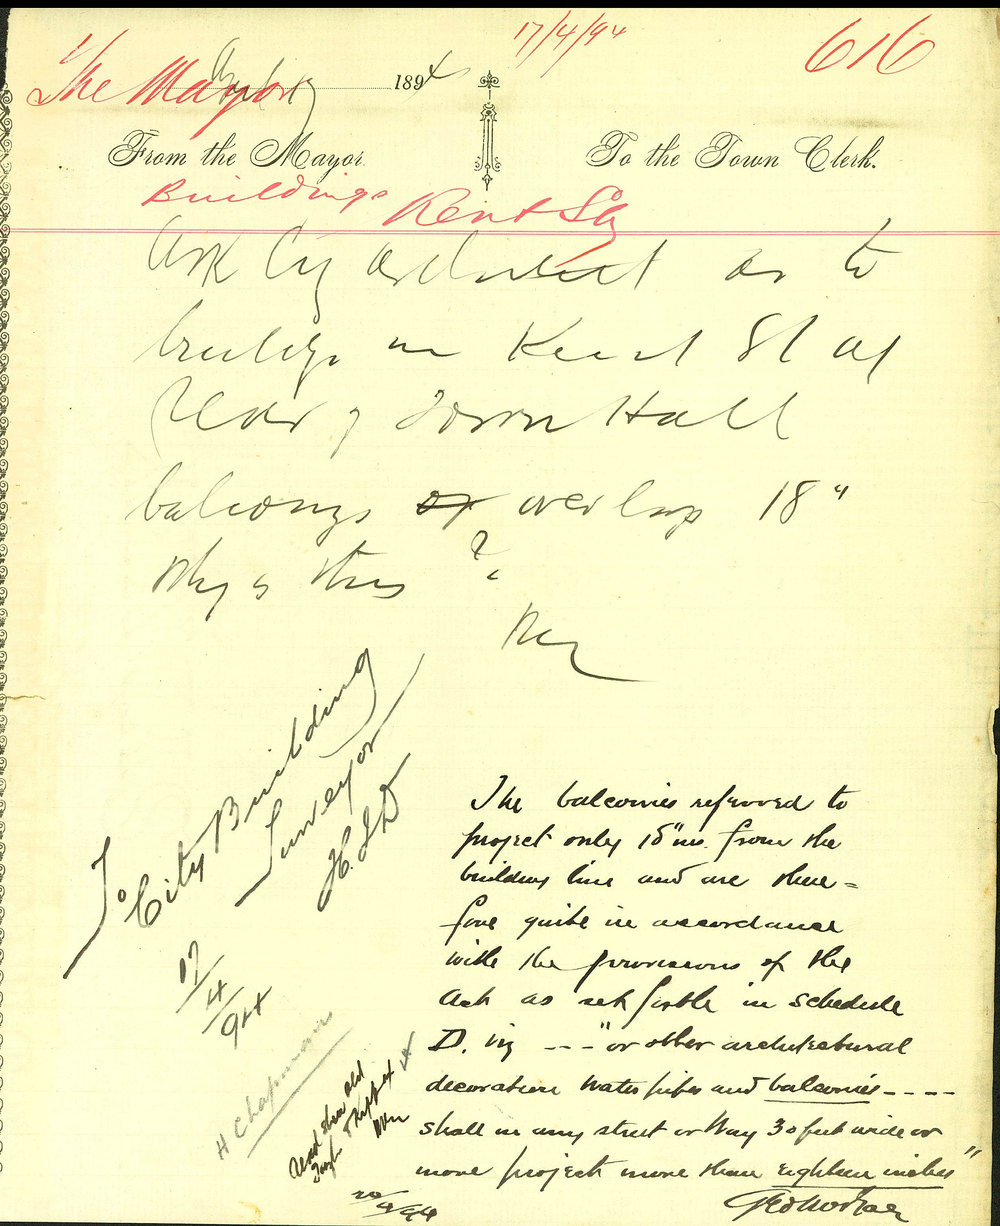 17/4/94
616
The Mayor
1894
From the Mayor
To the Town Clerk.
Buildings Kent St
Ask City Architect as to
buildgs in Kent St at
Rear of Town Hall
balconys overlap 18"
Why is this ?
To
City Building
Surveyor
H.
17/4/94
H Chapman
The balconies referred to
project only 18" ins. from the
building line and are there=
fore quite in accordance
with the provisions of the
Act as set forth in schedule
D. viz --- "or other architectural
decoration water pipes and balconies ----
shall in any street or Way 30 feet wide or
more project more than eighteen inches"
Geo